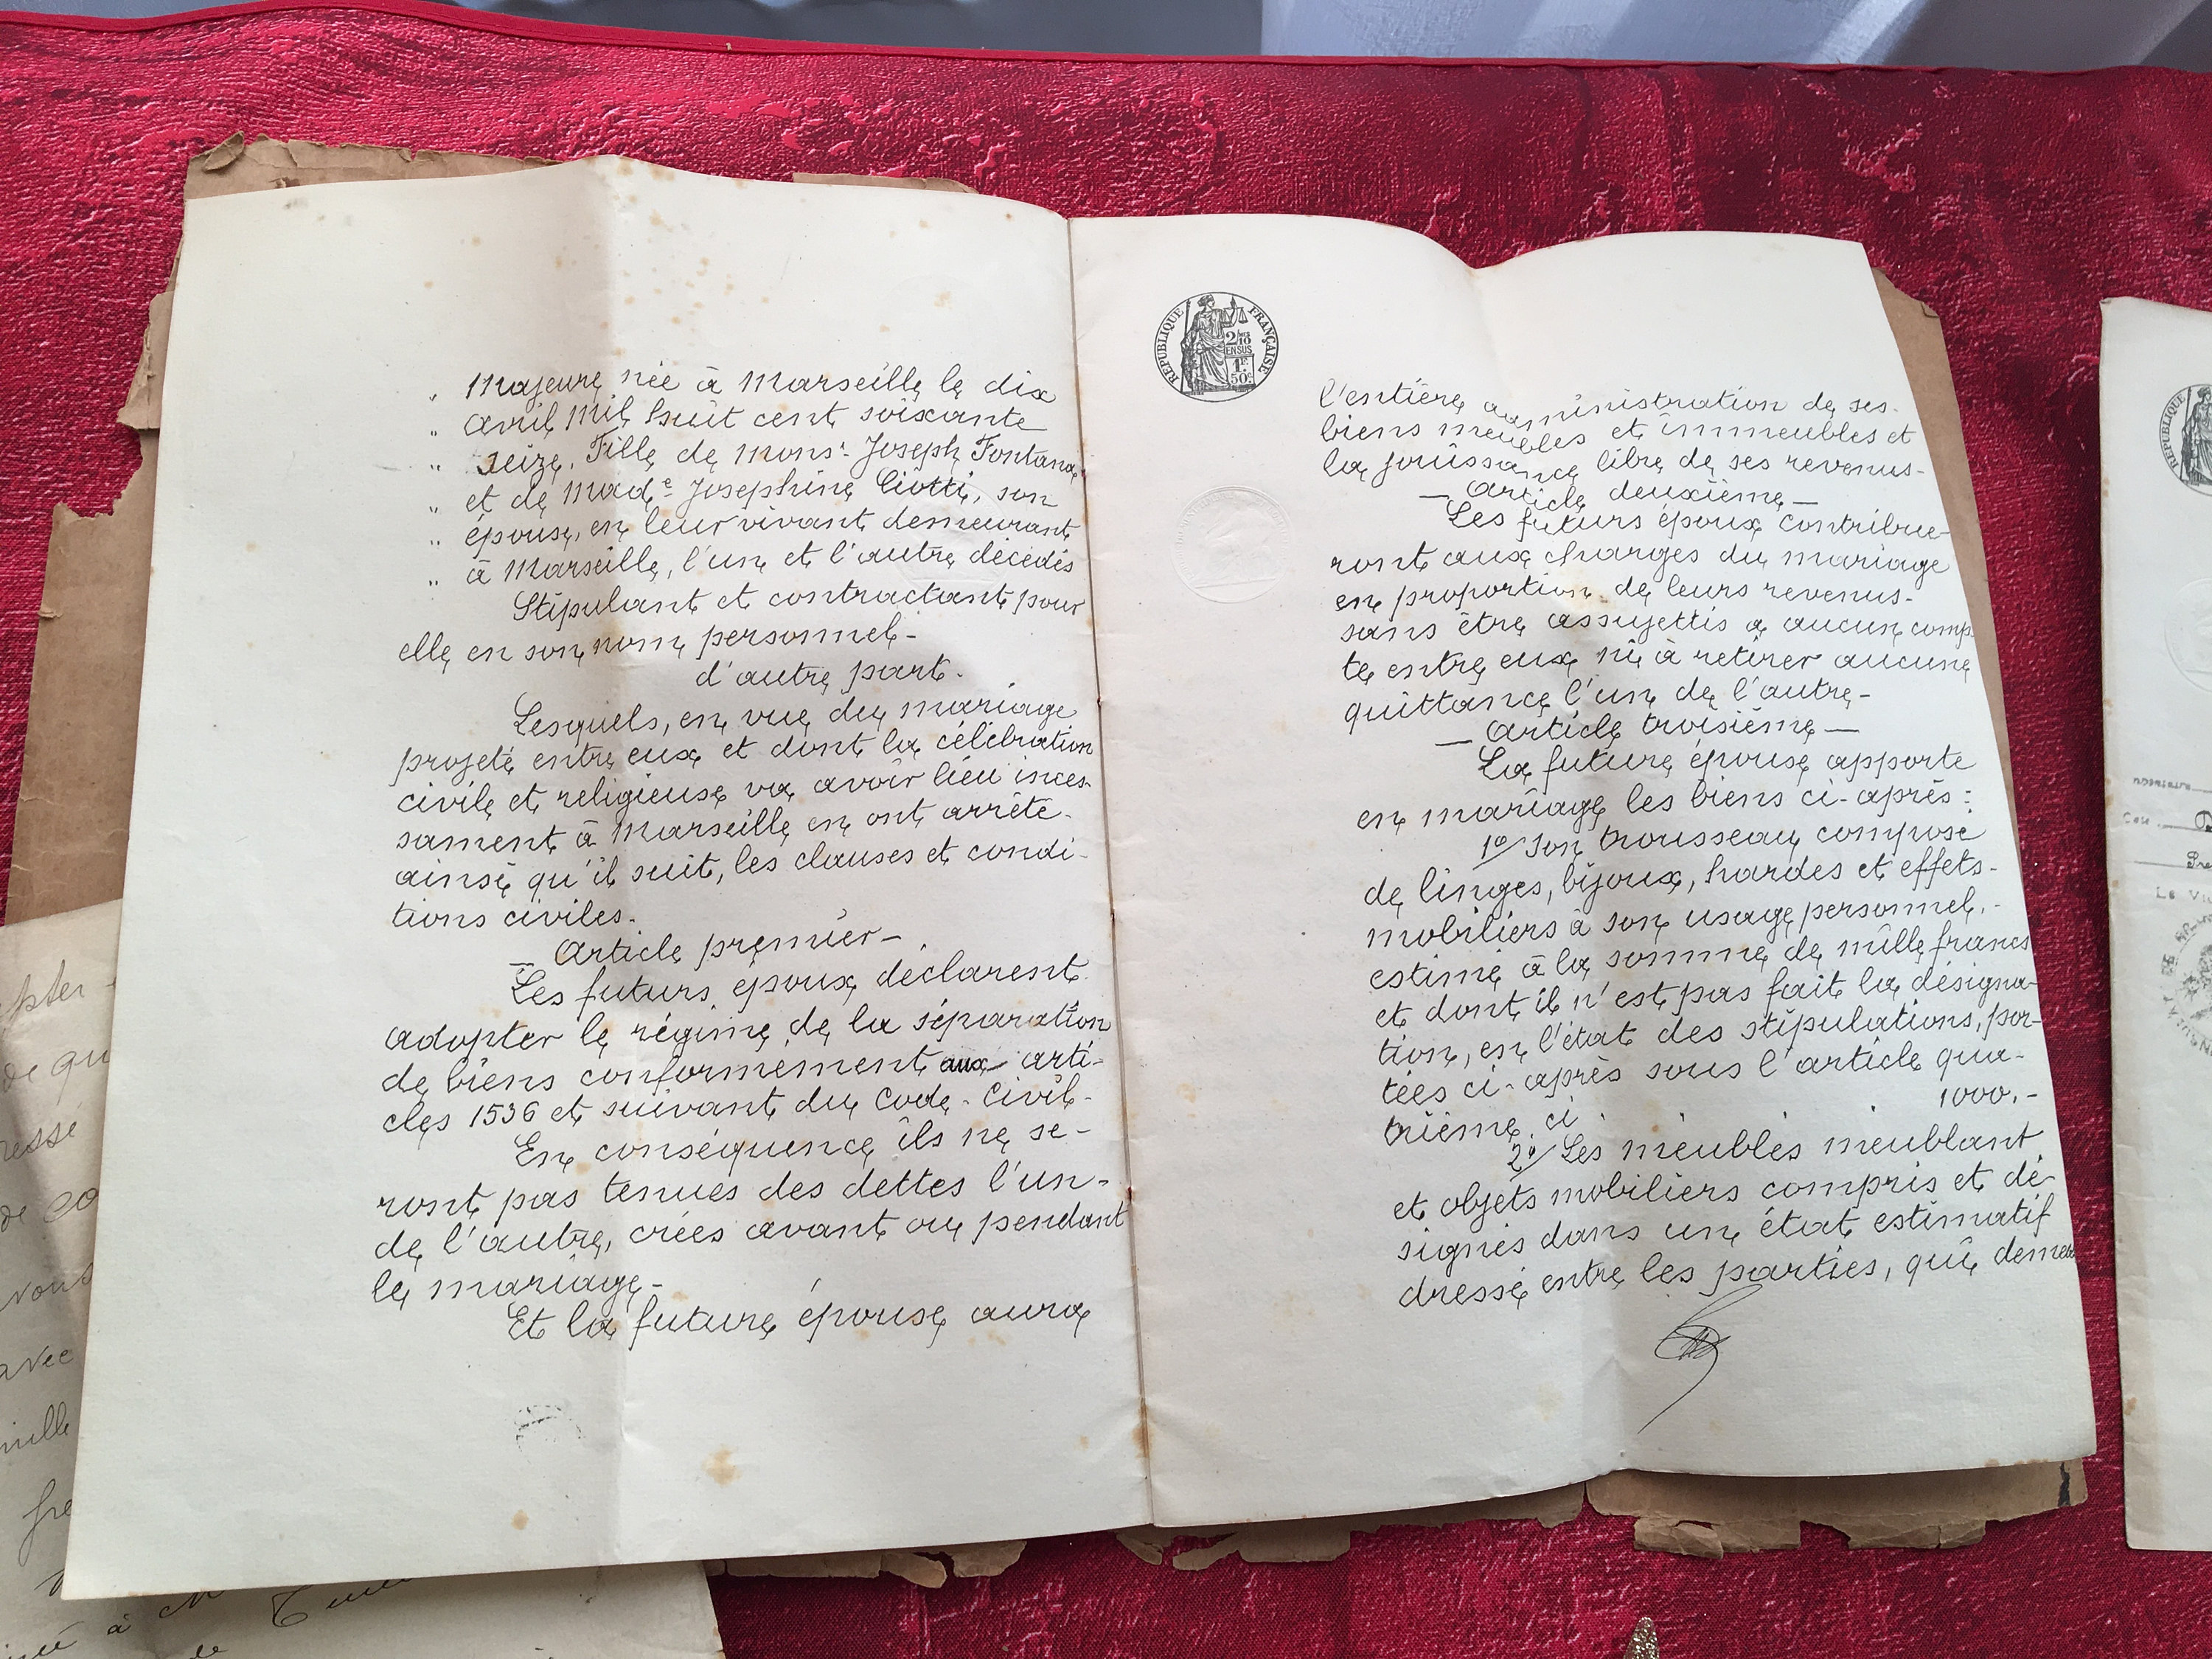 „ Majeure née à Marseille le dix
„ Avril Mil huit cent soixante
„ seize, Fille de Mons.r Joseph Fontana,
„ et de Made Josephine Ciotti, son
„ épouse, en leur vivant demeurant
„ à Marseille, l'un et l'autre décédés
Stipulant et contractant pour
elle en son nom personnel-
d'autre part.
Lesquels, en vue du mariage
projeté entre eux et dont la célébration
civile et religieuse va avoir lieu inces-
samment à Marseille en ont arrêté-
ainsi qu'il suit, les clauses et condi-
tions civiles-
— Article premier-
Les futurs époux déclarent
adopter le régime de la séparation
de biens conformément aux arti-
cles 1536 et suivant du Code-Civil-
En conséquence ils ne se-
ront pas tenues des dettes l'un-
de l'autre, crées avant ou pendant
le mariage-
Et la future épouse aura
RÉPUBLIQUE FRANÇAISE
2/10
EN SUS
1F
50c
l'entière administration de ses-
biens meubles et immeubles et
la jouissance libre de ses revenus-
— Article deuxième—
Les futurs époux contribue-
ront aux charges du mariage
en proportion de leurs revenus-
sans être assujettis a aucun comp-
te entre eux ni à retirer aucune
quittance l'un de l'autre-
— Article troisième—
La future épouse apporte
en mariage les biens ci-après:
1°/ Son trousseau composé
de linges, bijoux, hardes et effets-
mobiliers à son usage personnel,-
estimé à la somme de mille francs
et dont il n'est pas fait la désigna-
tion, en l'état des stipulations, por-
tées ci-après sous l'article qua-
trième, ci 1000.-
2°/ Les meubles meublant
et objets mobiliers compris et dé-
signés dans un état estimatif
dressé entre les parties, qui demeu
pter
de qu
ressé
de co
vous
avec
mille
fre
à
RÉPUBLIQUE